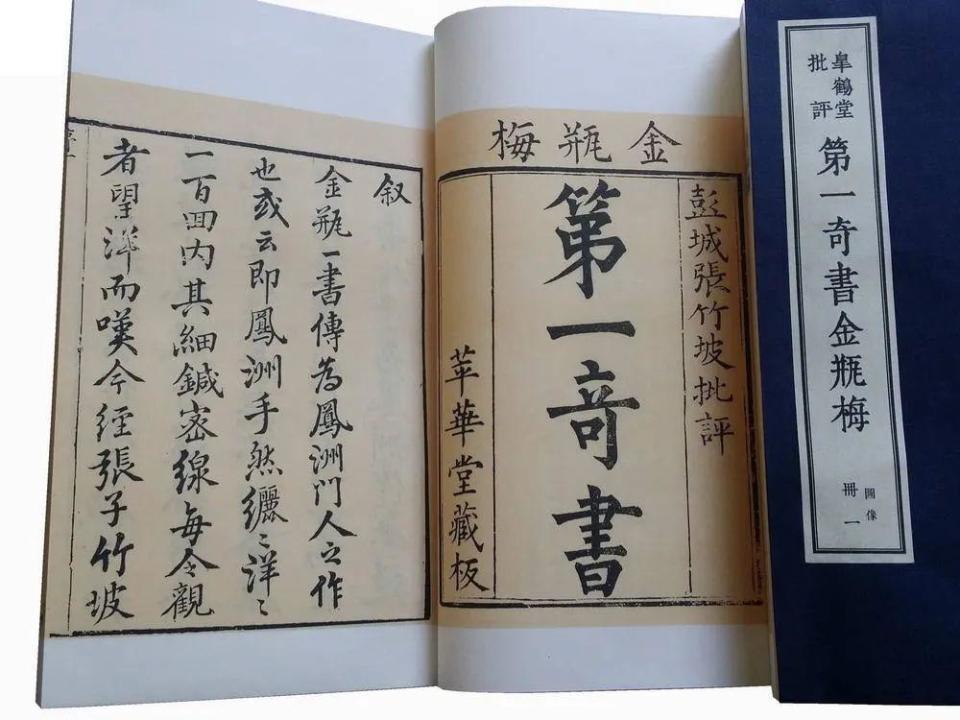 皐鶴堂
批評
第一奇書金瓶梅
圖像
冊一
金瓶梅
彭城張竹坡批評
第一奇書
苹華堂藏板
叙
金瓶一書傳為鳳洲門人之作
也或云即鳳洲手然纚〻洋〻
一百回内其細鍼密線每令觀
者望洋而嘆今經張子竹坡